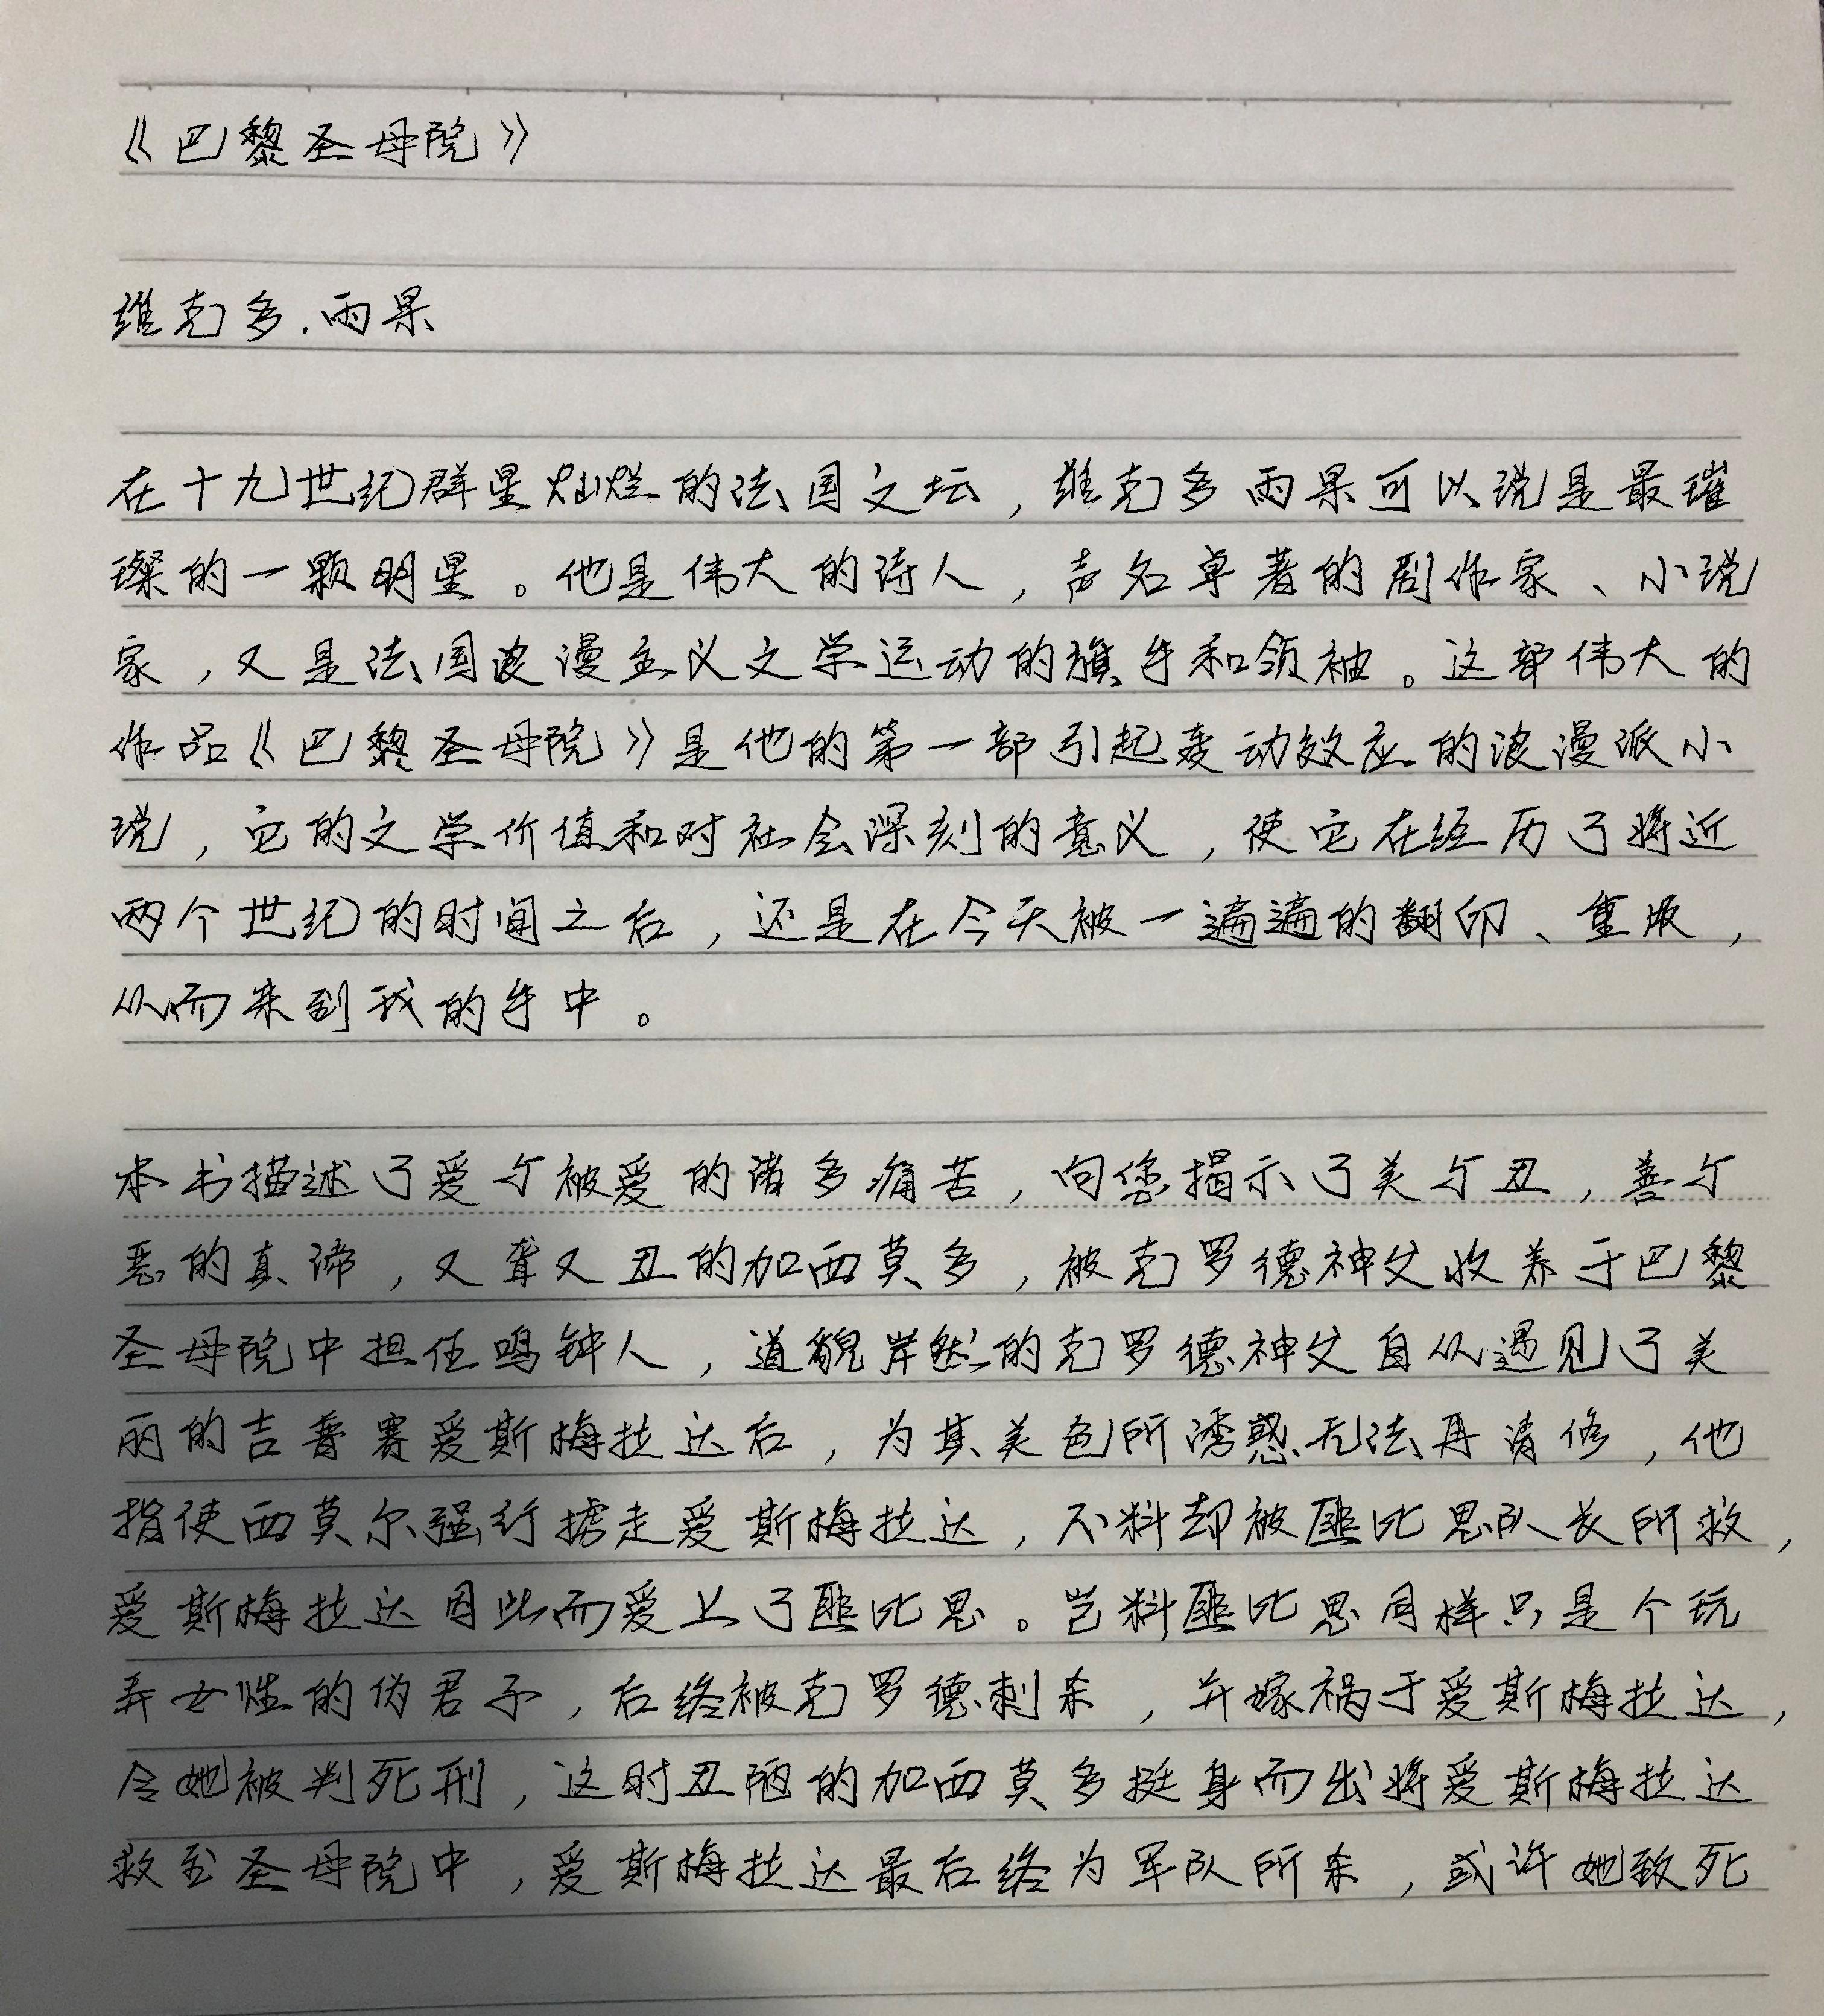 《巴黎圣母院》
维克多.雨果
在十九世纪群星灿烂的法国文坛，维克多雨果可以说是最璀
璨的一颗明星。他是伟大的诗人，声名卓著的剧作家、小说
家，又是法国浪漫主义文学运动的旗手和领袖。这部伟大的
作品《巴黎圣母院》是他的第一部引起轰动效应的浪漫派小
说，它的文学价值和对社会深刻的意义，使它在经历了将近
两个世纪的时间之后，还是在今天被一遍遍的翻印、重版，
从而来到我的手中。
本书描述了爱与被爱的诸多痛苦，向您揭示了美与丑，善与
恶的真谛，又聋又丑的加西莫多，被克罗德神父收养于巴黎
圣母院中担任鸣钟人，道貌岸然的克罗德神父自从遇见了美
丽的吉普赛爱斯梅拉达后，为其美色所诱惑无法再清修，他
指使西莫尔强行掳走爱斯梅拉达，不料却被匪比思队长所救，
爱斯梅拉达因此而爱上了匪比思。岂料匪比思同样只是个玩
弄女性的伪君子，后终被克罗德刺杀，并嫁祸于爱斯梅拉达，
令她被判死刑，这时丑陋的加西莫多挺身而出将爱斯梅拉达
救至圣母院中，爱斯梅拉达最后终为军队所杀，或许她致死